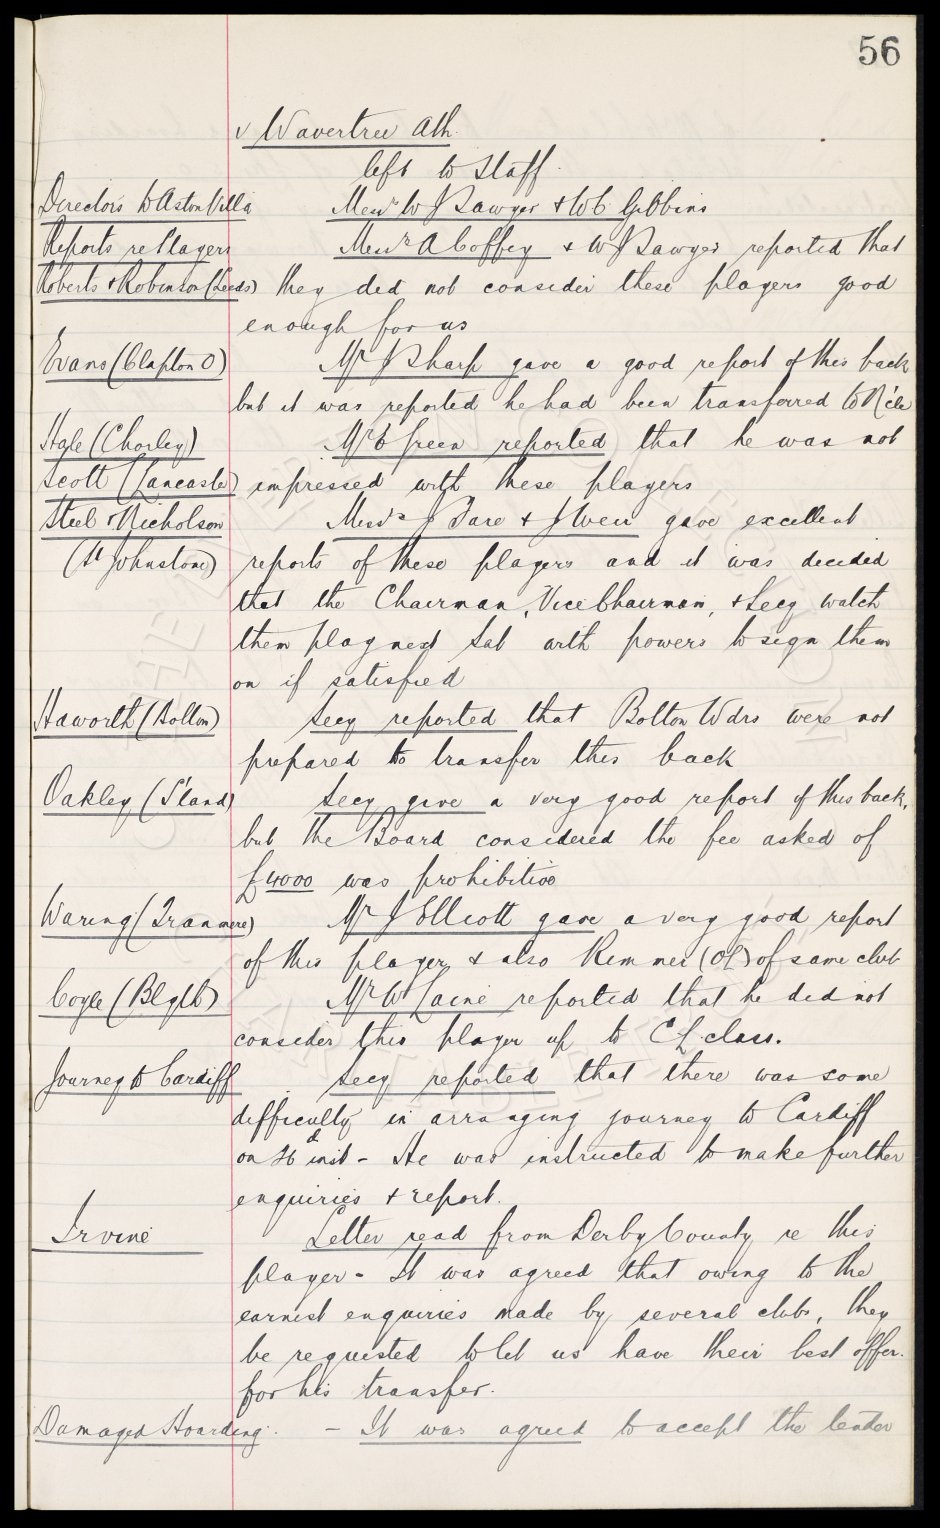 56
v Wavertree Ath.
left to Staff.
Directors to Aston Villa Messrs W J Sawyer & W C Gibbins
Reports re Players Messrs A Coffey & W J Sawyer reported that
Roberts & Robinson (Leeds) they did not consider these players good
enough for us
Evans (Clapton O) Mr J Sharp gave a good report of this back
but it was reported he had been transferred to N'cle
Hale (Chorley) Mr C Green reported that he was not
Scott (Lancaster) impressed with these players
Steel & Nicholson Messrs J Tare & J Weir gave excellent
(St Johnstone) reports of these players and it was decided
that the Chairman, Vice Chairman, & Secy watch
them play next Sat with powers to sign them
on if satisfied
Haworth (Bolton) Secy reported that Bolton Wdrs were not
prepared to transfer this back
Oakley (S'land) Secy gave a very good report of this back,
but the Board considered the fee asked of
£4000 was prohibitive
Waring (Tranmere) Mr J Elliott gave a very good report
of this player & also Rimmer (OL) of same club
Coyle (Blyth) Mr W Laine reported that he did not
consider this player up to CL class.
Journey to Cardiff Secy reported that there was some
difficulty in arranging journey to Cardiff
on 26 inst - He was instructed to make further
enquiries & report.
Irvine Letter read from Derby County re this
player - It was agreed that owing to the
earnest enquiries made by several clubs, they
be requested to let us have their best offer.
for his transfer.
Damaged Hoarding. - It was agreed to accept the tender